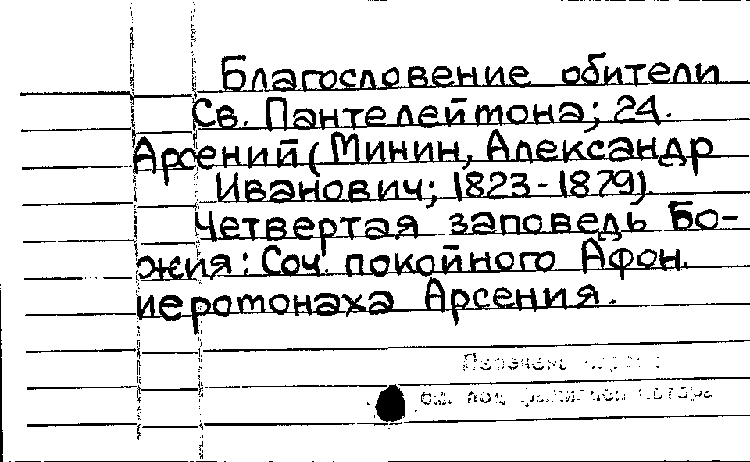 Благословение обители
Св. Пантелеймона; 24.
Арсений (Минин, Александр
Иванович; 1823-1879).
Четвертая заповедь Бо-
жия: Соч. покойного Афон.
иеромонаха Арсения.
см. под фамилией автора